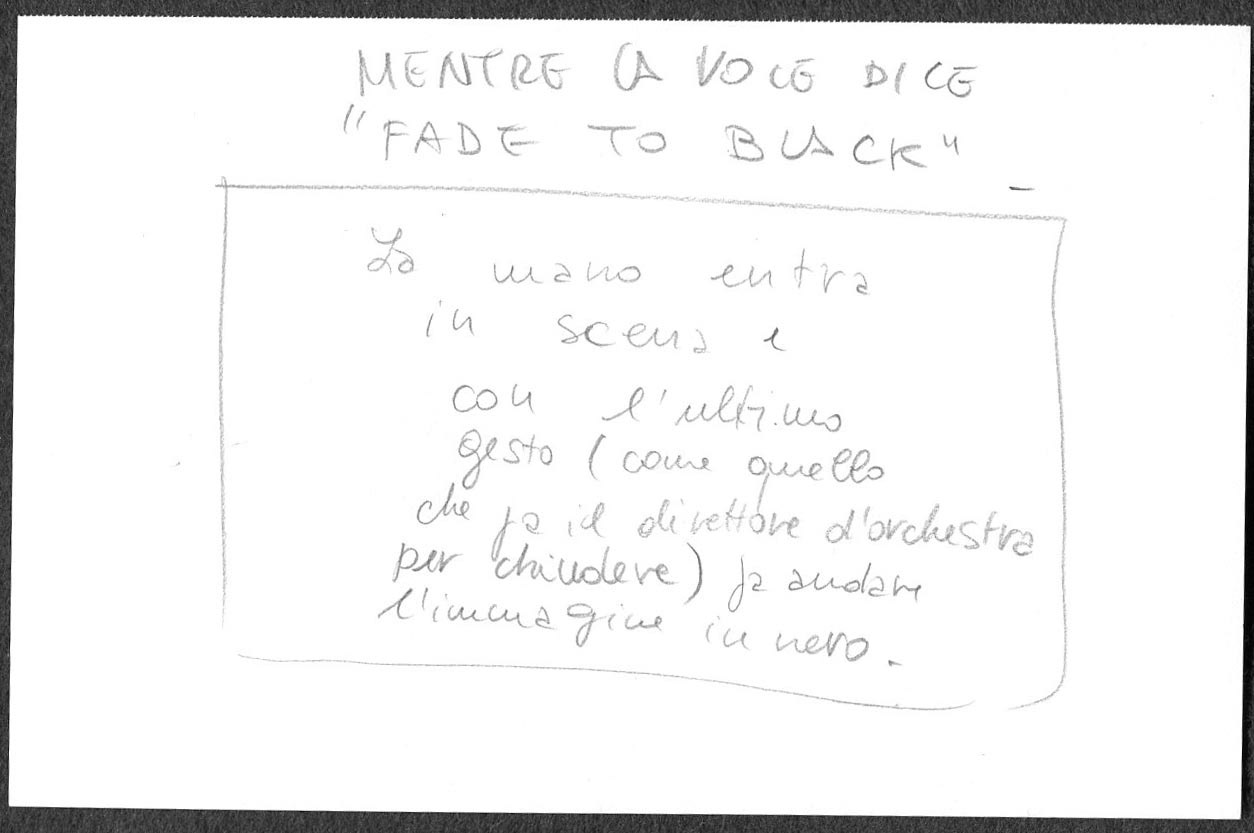 MENTRE LA VOCE DICE
"FADE TO BLACK"
La mano entra
in scena e
con l'ultimo
gesto (come quello
che fa il direttore d'orchestra
per chiudere) fa andare
l'immagine in nero.